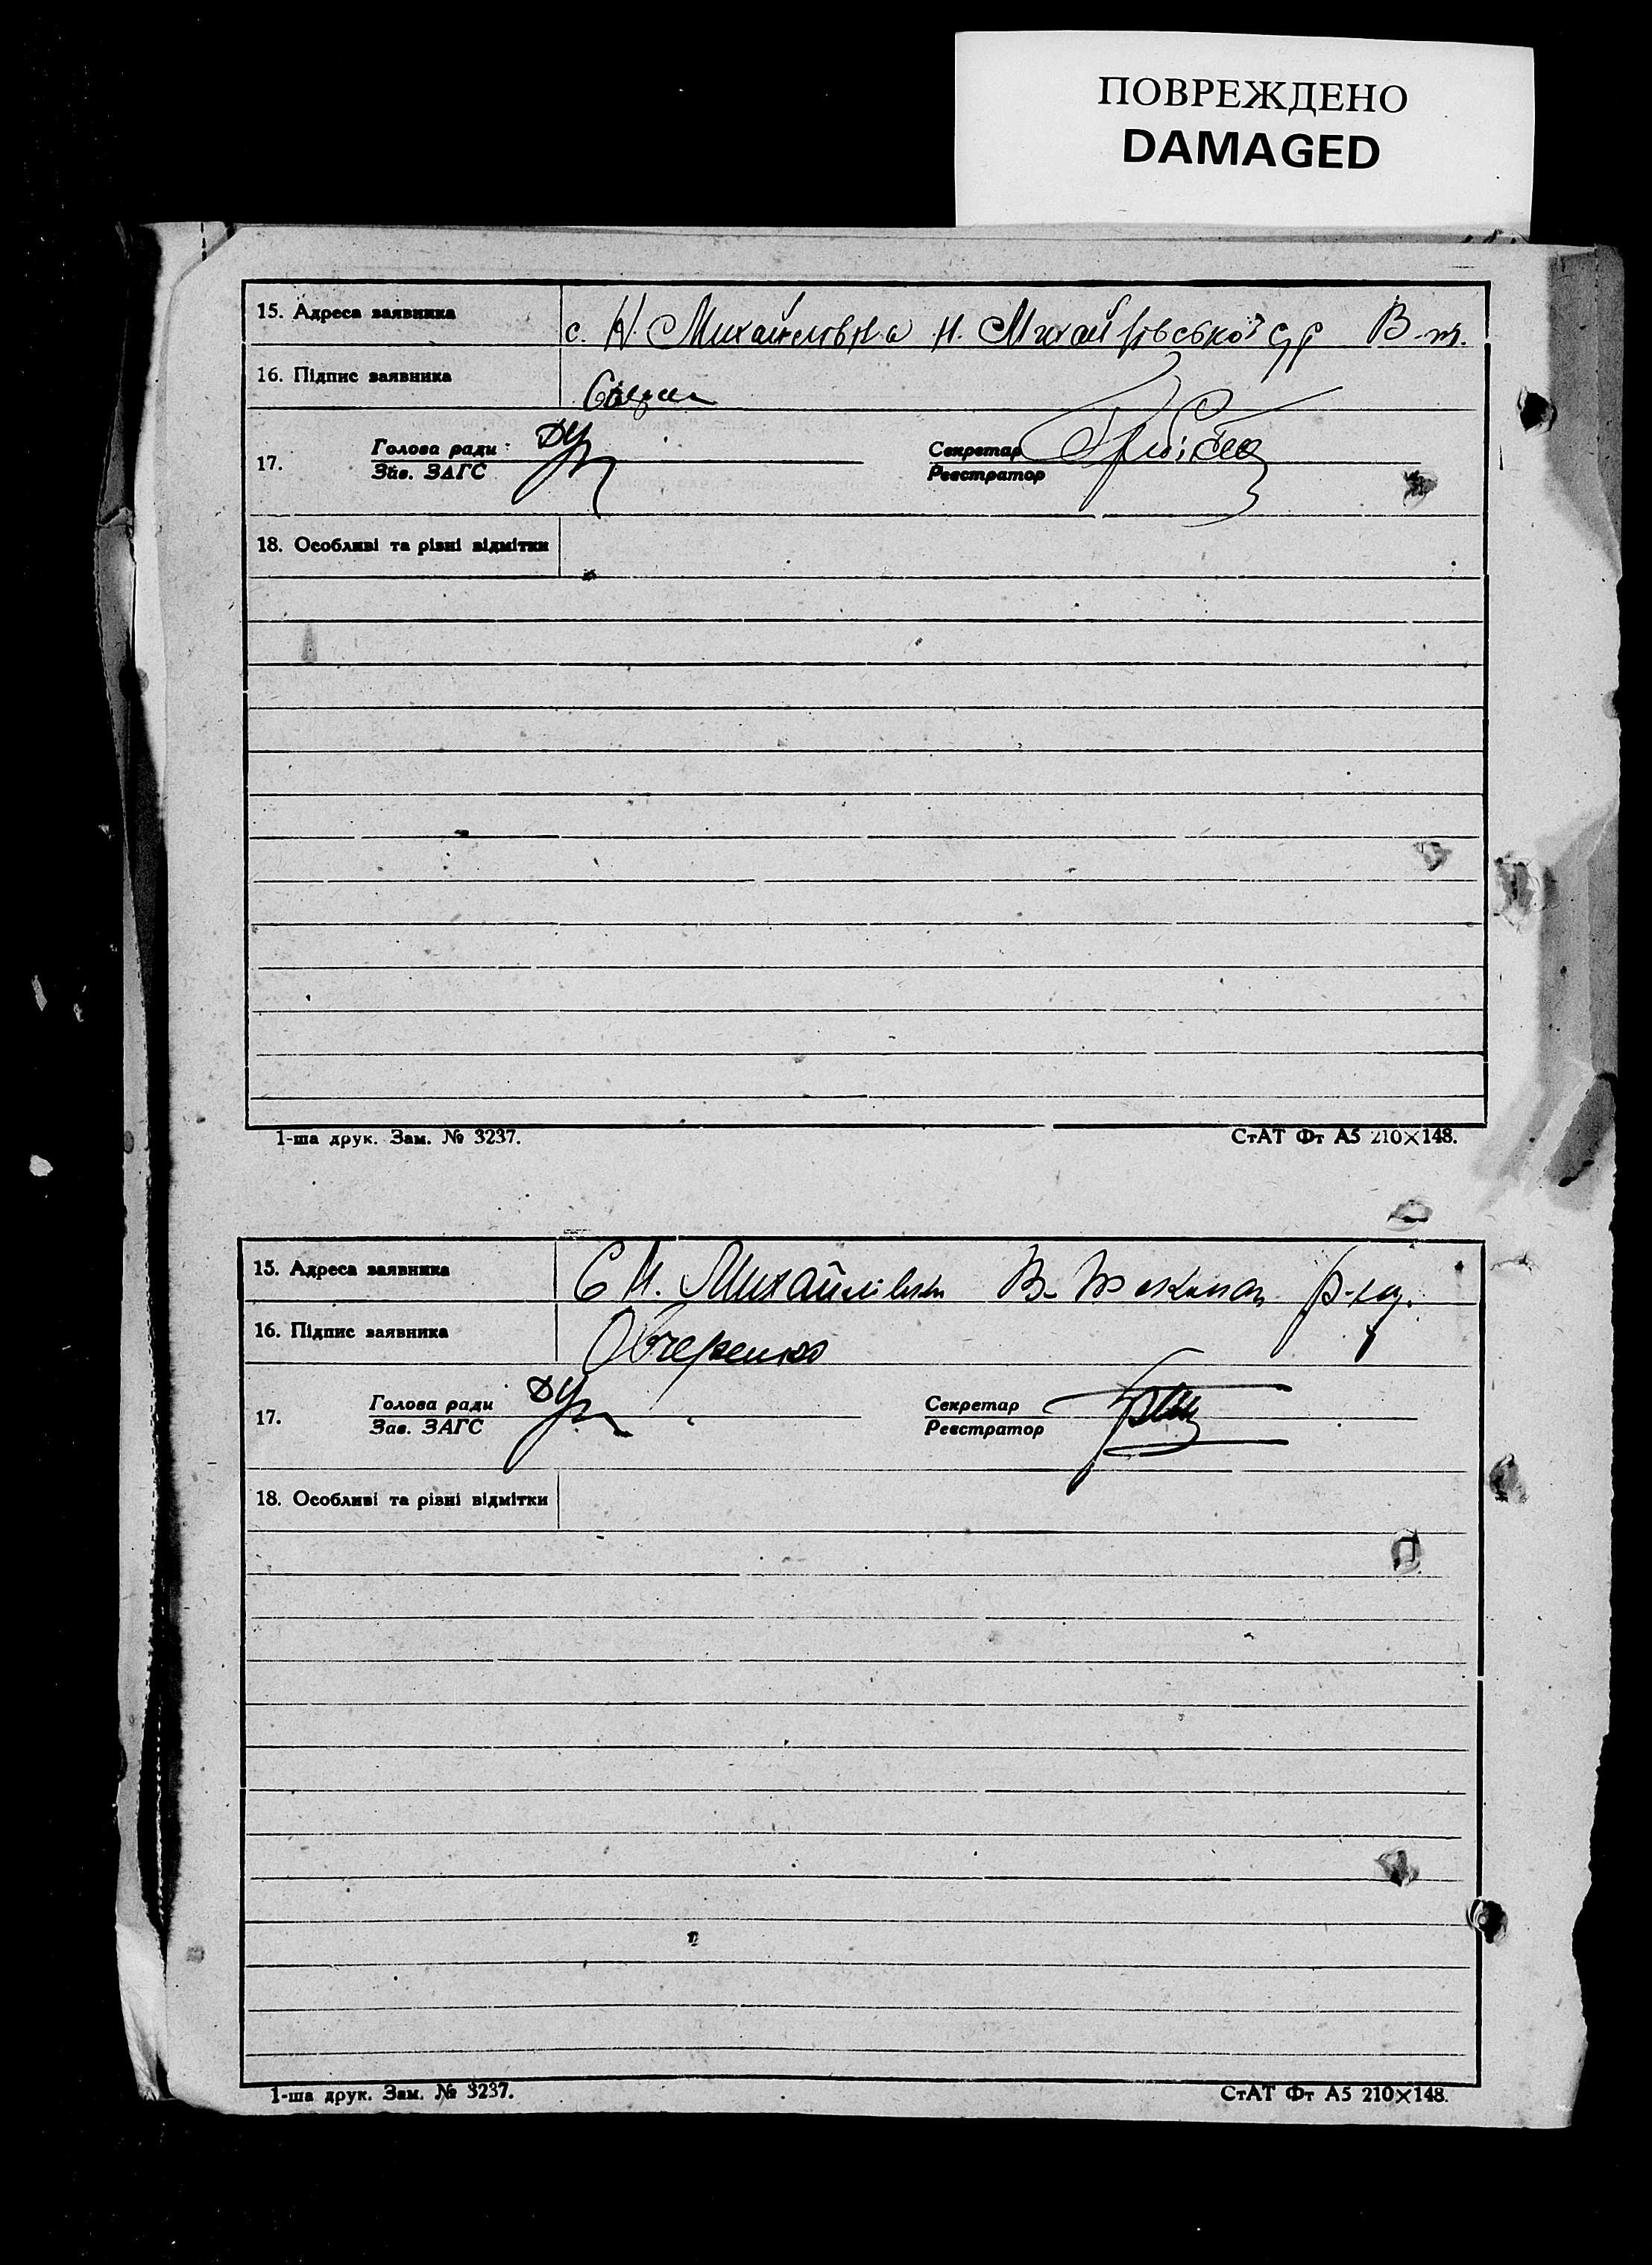 ПОВРЕЖДЕНО
DAMAGED
15. Адреса заявника с. Н. Михайловка Н. Михайлівської с/р В-т.
16. Підпис заявника
17. Голова ради Секретар
Зав. ЗАГС Реєстратор
18. Особливі та різні відмітки
1-ша друк. Зам. № 3237. СтАТ Фт А5 210×148.
15. Адреса заявника С Н. Михайлівки В- р-ну.
16. Підпис заявника Овчеренко
17. Голова ради Секретар
Зав. ЗАГС Реєстратор
18. Особливі та різні відмітки
1-ша друк. Зам. № 3237. СтАТ Фт А5 210×148.